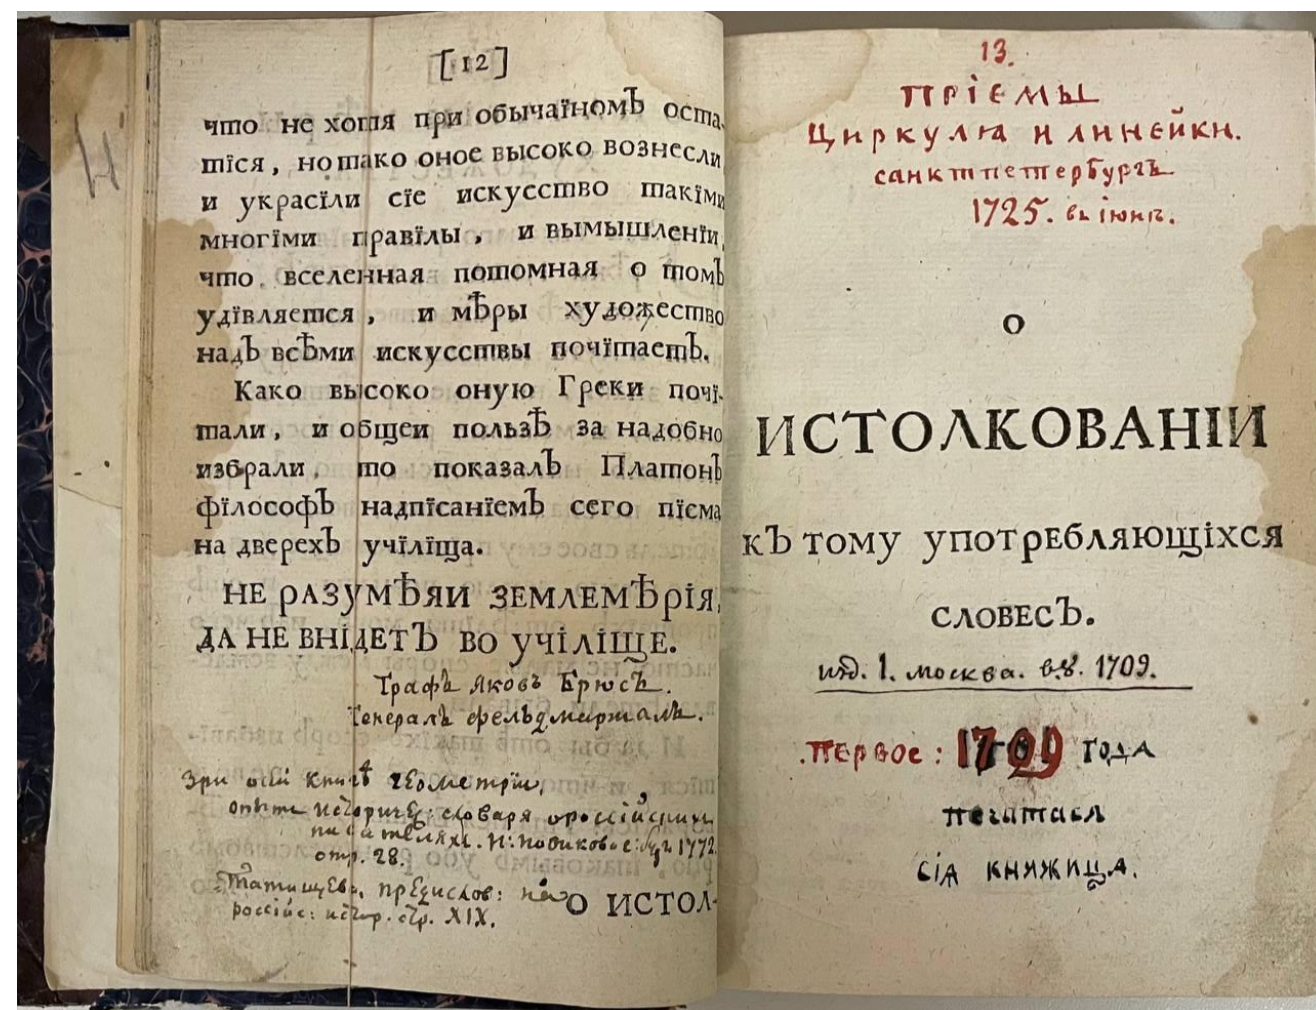 [12]
что не хотя при обычаїномЪ оста-
тїся, но тако оное высоко вознесли
и украсїли сїе искусство такїми
многїми правїлы, и вымышленїи,
что вселенная потомная о томЪ
удївляется, и мѢры художество
надЪ всѢми искусствы почїтаетЪ.
Како высоко оную Греки почї-
тали, и общеи пользѢ за надобно
избрали, то показалЪ ПлатонЪ
фїлософЪ надпїсанїемЪ сего пїсма
на дверехЪ учїлїща.
НЕ РАЗУМѢЯИ ЗЕМЛЕМѢРІЯ,
ДА НЕ ВНІДЕТЪ ВО УЧІЛІЩЕ.
Графъ Яковъ Брюсъ.
Генералъ фельдмаршалъ.
Зри сїи книгѣ геометрїи,
опытъ историч: словаря о россїйскихъ
писателяхъ. Н: Новиковое: 1772
стр. 28.
Татищева, предислов: на
россїйс: истор. стр. XIX.
О ИСТОЛ-
13.
Прїемы
Циркуля и линейки.
санктпетербургъ
1725. въ їюнѣ.
О
ИСТОЛКОВАНІИ
кЪ тому употребляющїхся
словесЪ.
изд. 1. москва. 1709.
.первое: 1709 года
печатася
сїя книжица.